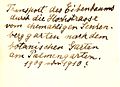 Transport des Eibenbaums
durch die Hochstrasse
vom ehemaligen Senken-
berggarten nach dem
botanischen Garten
am Palmengarten.
1907 1910?